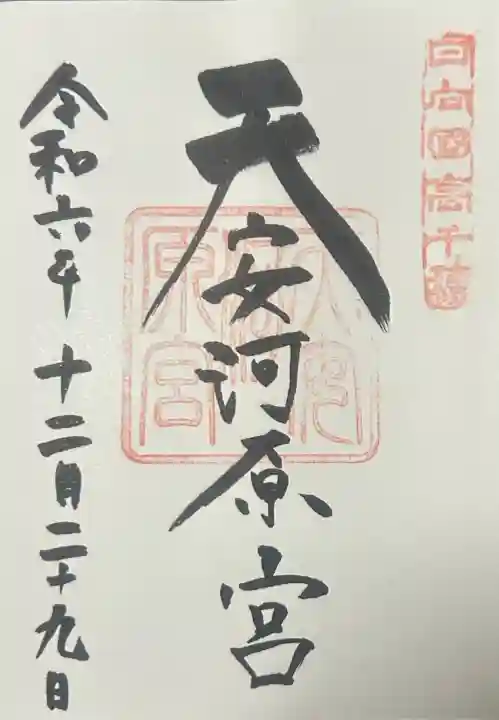 日向國高千穂
天安河原宮
天安河原宮
令和六年 十二月二十九日